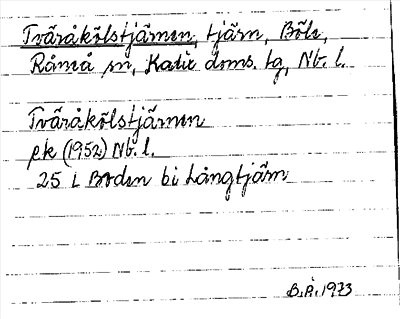 Tväråkölstjärnen, tjärn, Böle,
Råneå sn, Kalix doms. tg, Nb. l.
Tväråkölstjärnen
ek (1952) Nb. l.
25 L Boden bi Långtjärn
B.Å. 1973